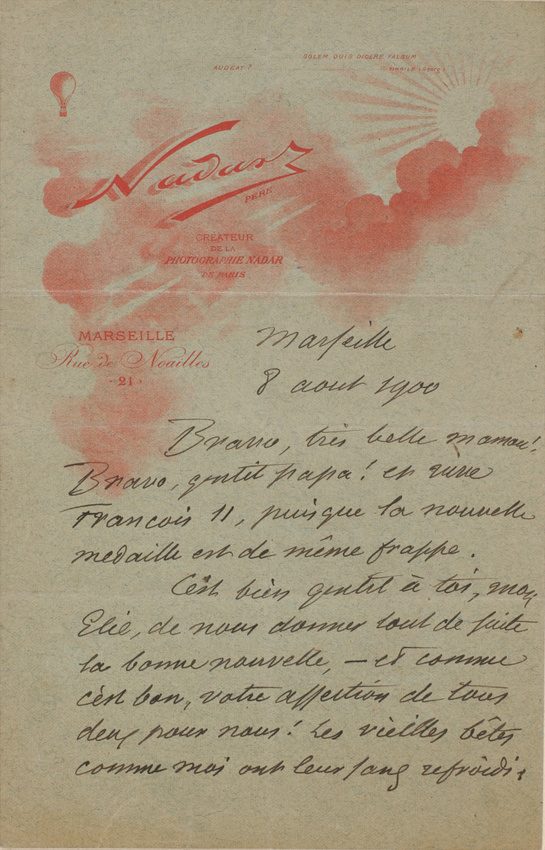 SOLEM QUIS DICERE FALSUM
AUDEAT ?
Nadar
PÈRE
CRÉATEUR
DE LA
PHOTOGRAPHIE NADAR
DE PARIS
MARSEILLE
Rue de Noailles
· 21 ·
Marseille
8 aout 1900
Bravo, très belle maman!
Bravo, gentil papa! et vive
François II, puisque la nouvelle
medaille est de même frappe.
C'est bien gentil à toi, mon
Elie, de nous donner tout de suite
la bonne nouvelle, — et comme
c'est bon, votre affection de tous
deux pour nous! Les vieilles bêtes
comme moi ont leur sang refroidi,